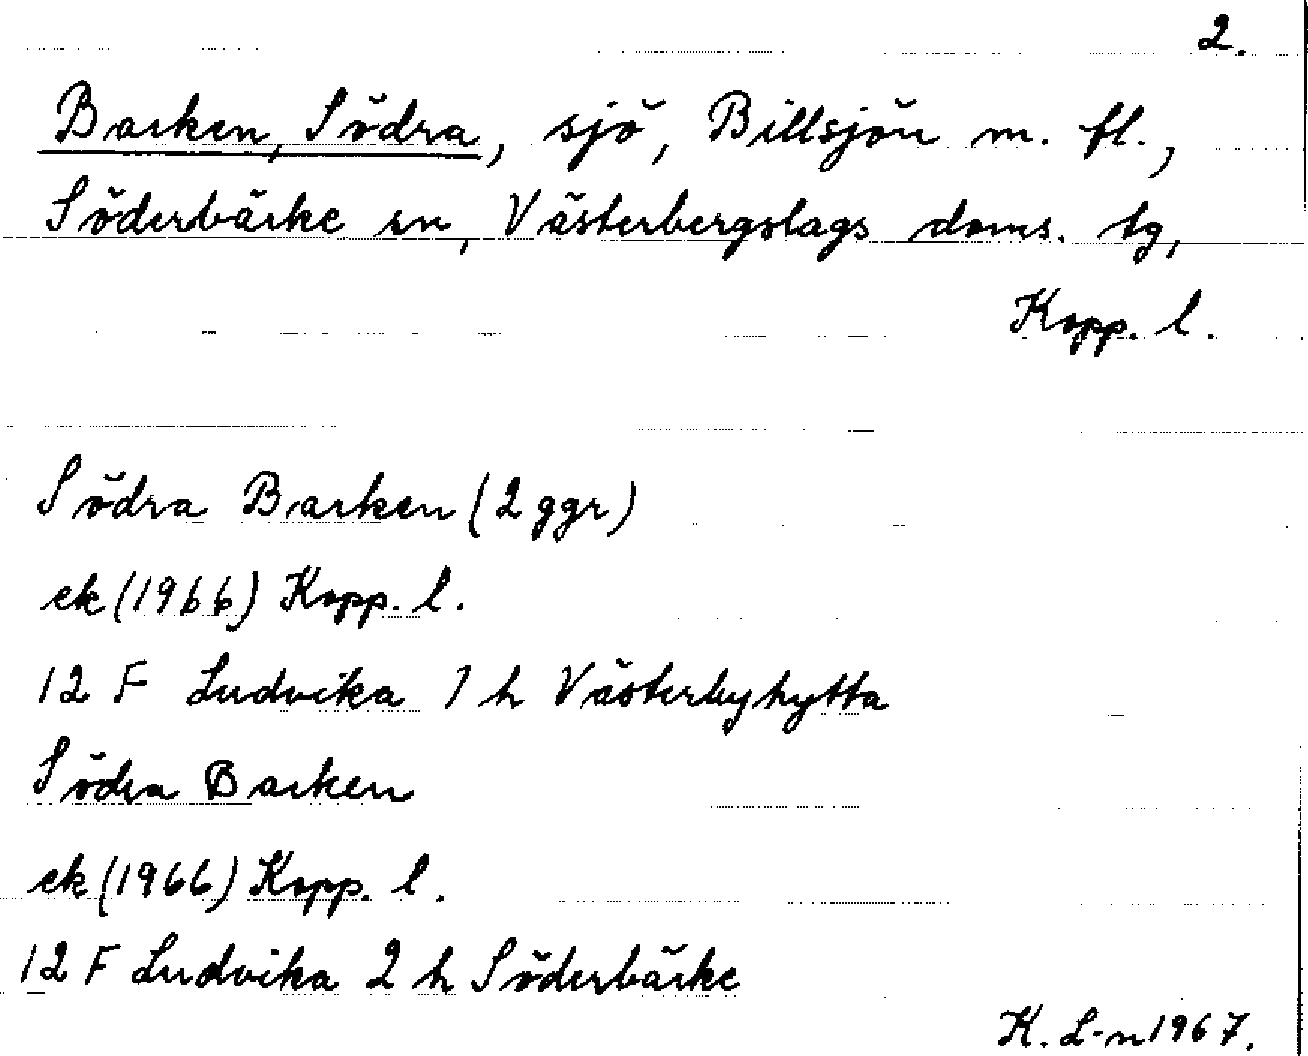 2.
Barken, Södra, sjö, Billsjön m. fl.,
Söderbärke sn, Västerbergslags doms. tg,
Kopp. l.
Södra Barken (2 ggr)
ek (1966) Kopp. l.
12 F Ludvika 1 h Västerbyhytta
Södra Barken
ek (1966) Kopp. l.
12 F Ludvika 2 h Söderbärke
K. L-n 1967.